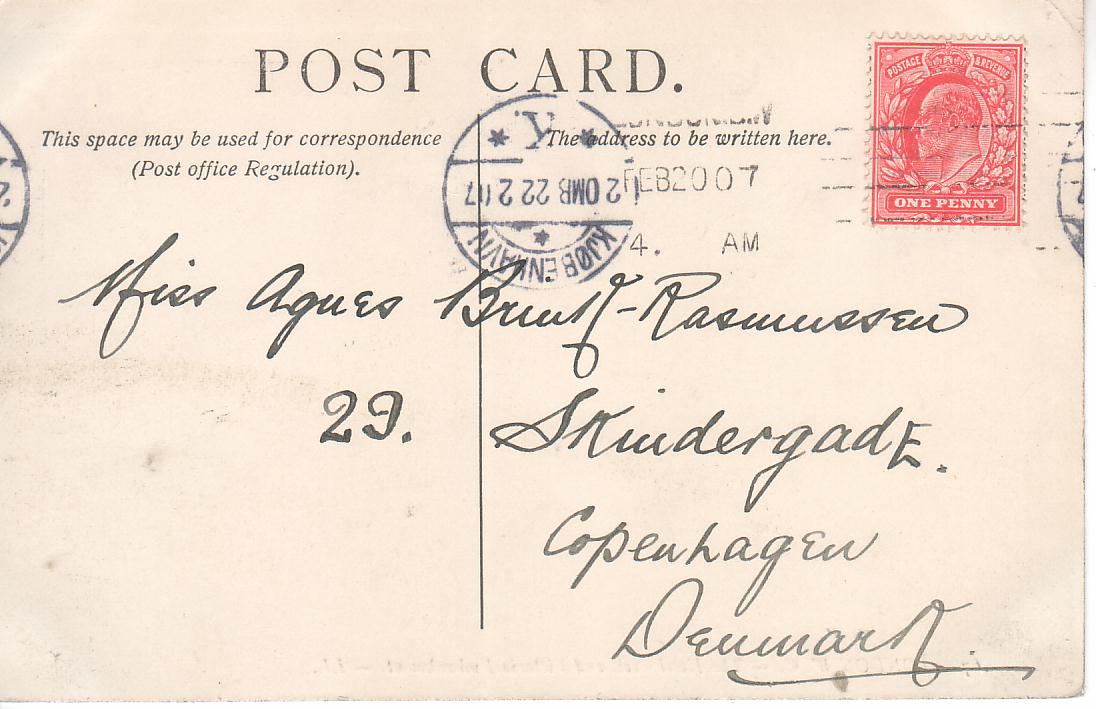 POST CARD.
This space may be used for correspondence
(Post office Regulation).
The address to be written here.
POSTAGE & REVENUE
ONE PENNY
LONDON.E.W
FEB 20 07
4. AM
K.
2 OMB 22 2 07
KJØBENHAVN
Miss Agnes Brink-Rasmussen
29. Skindergade.
Copenhagen
Denmark.